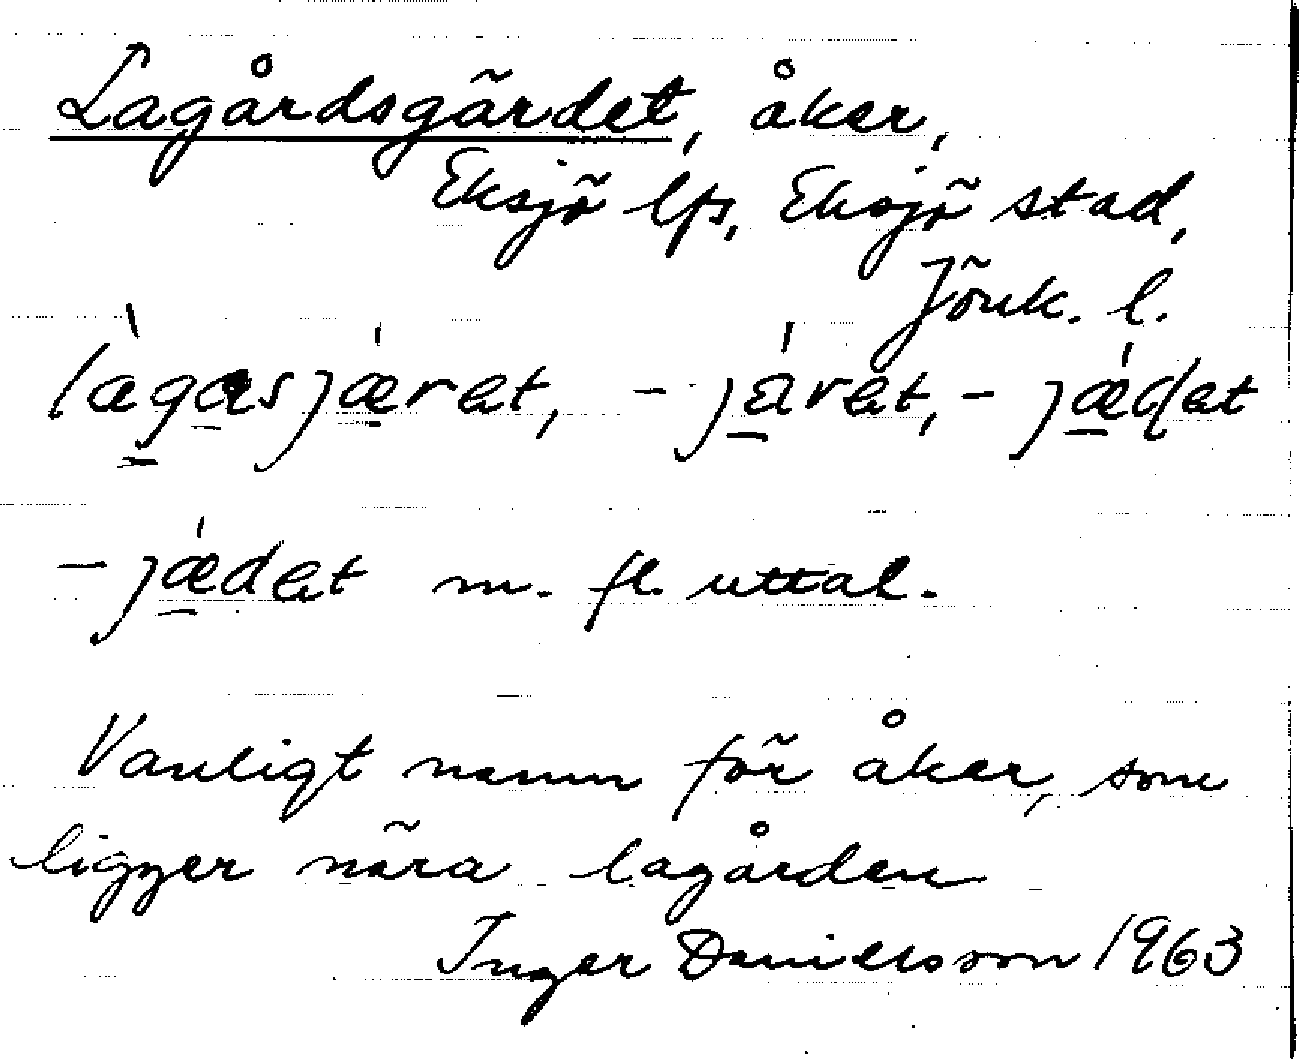 Lagårdsgärdet, åker,
Eksjö lfs, Eksjö stad,
Jönk. l.
làgasjǽret, -jǽret, -jǽdet
-jǽdet m. fl. uttal.
Vanligt namn för åker, som
ligger nära lagården
Inger Danielsson 1963